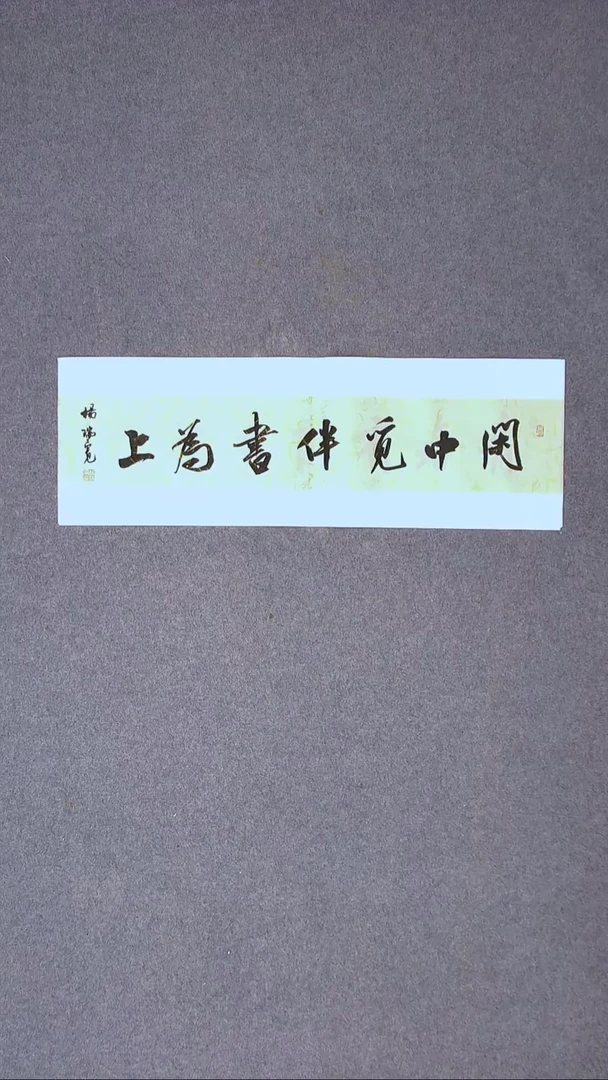 閑中覓伴書為上
楊瑞寬